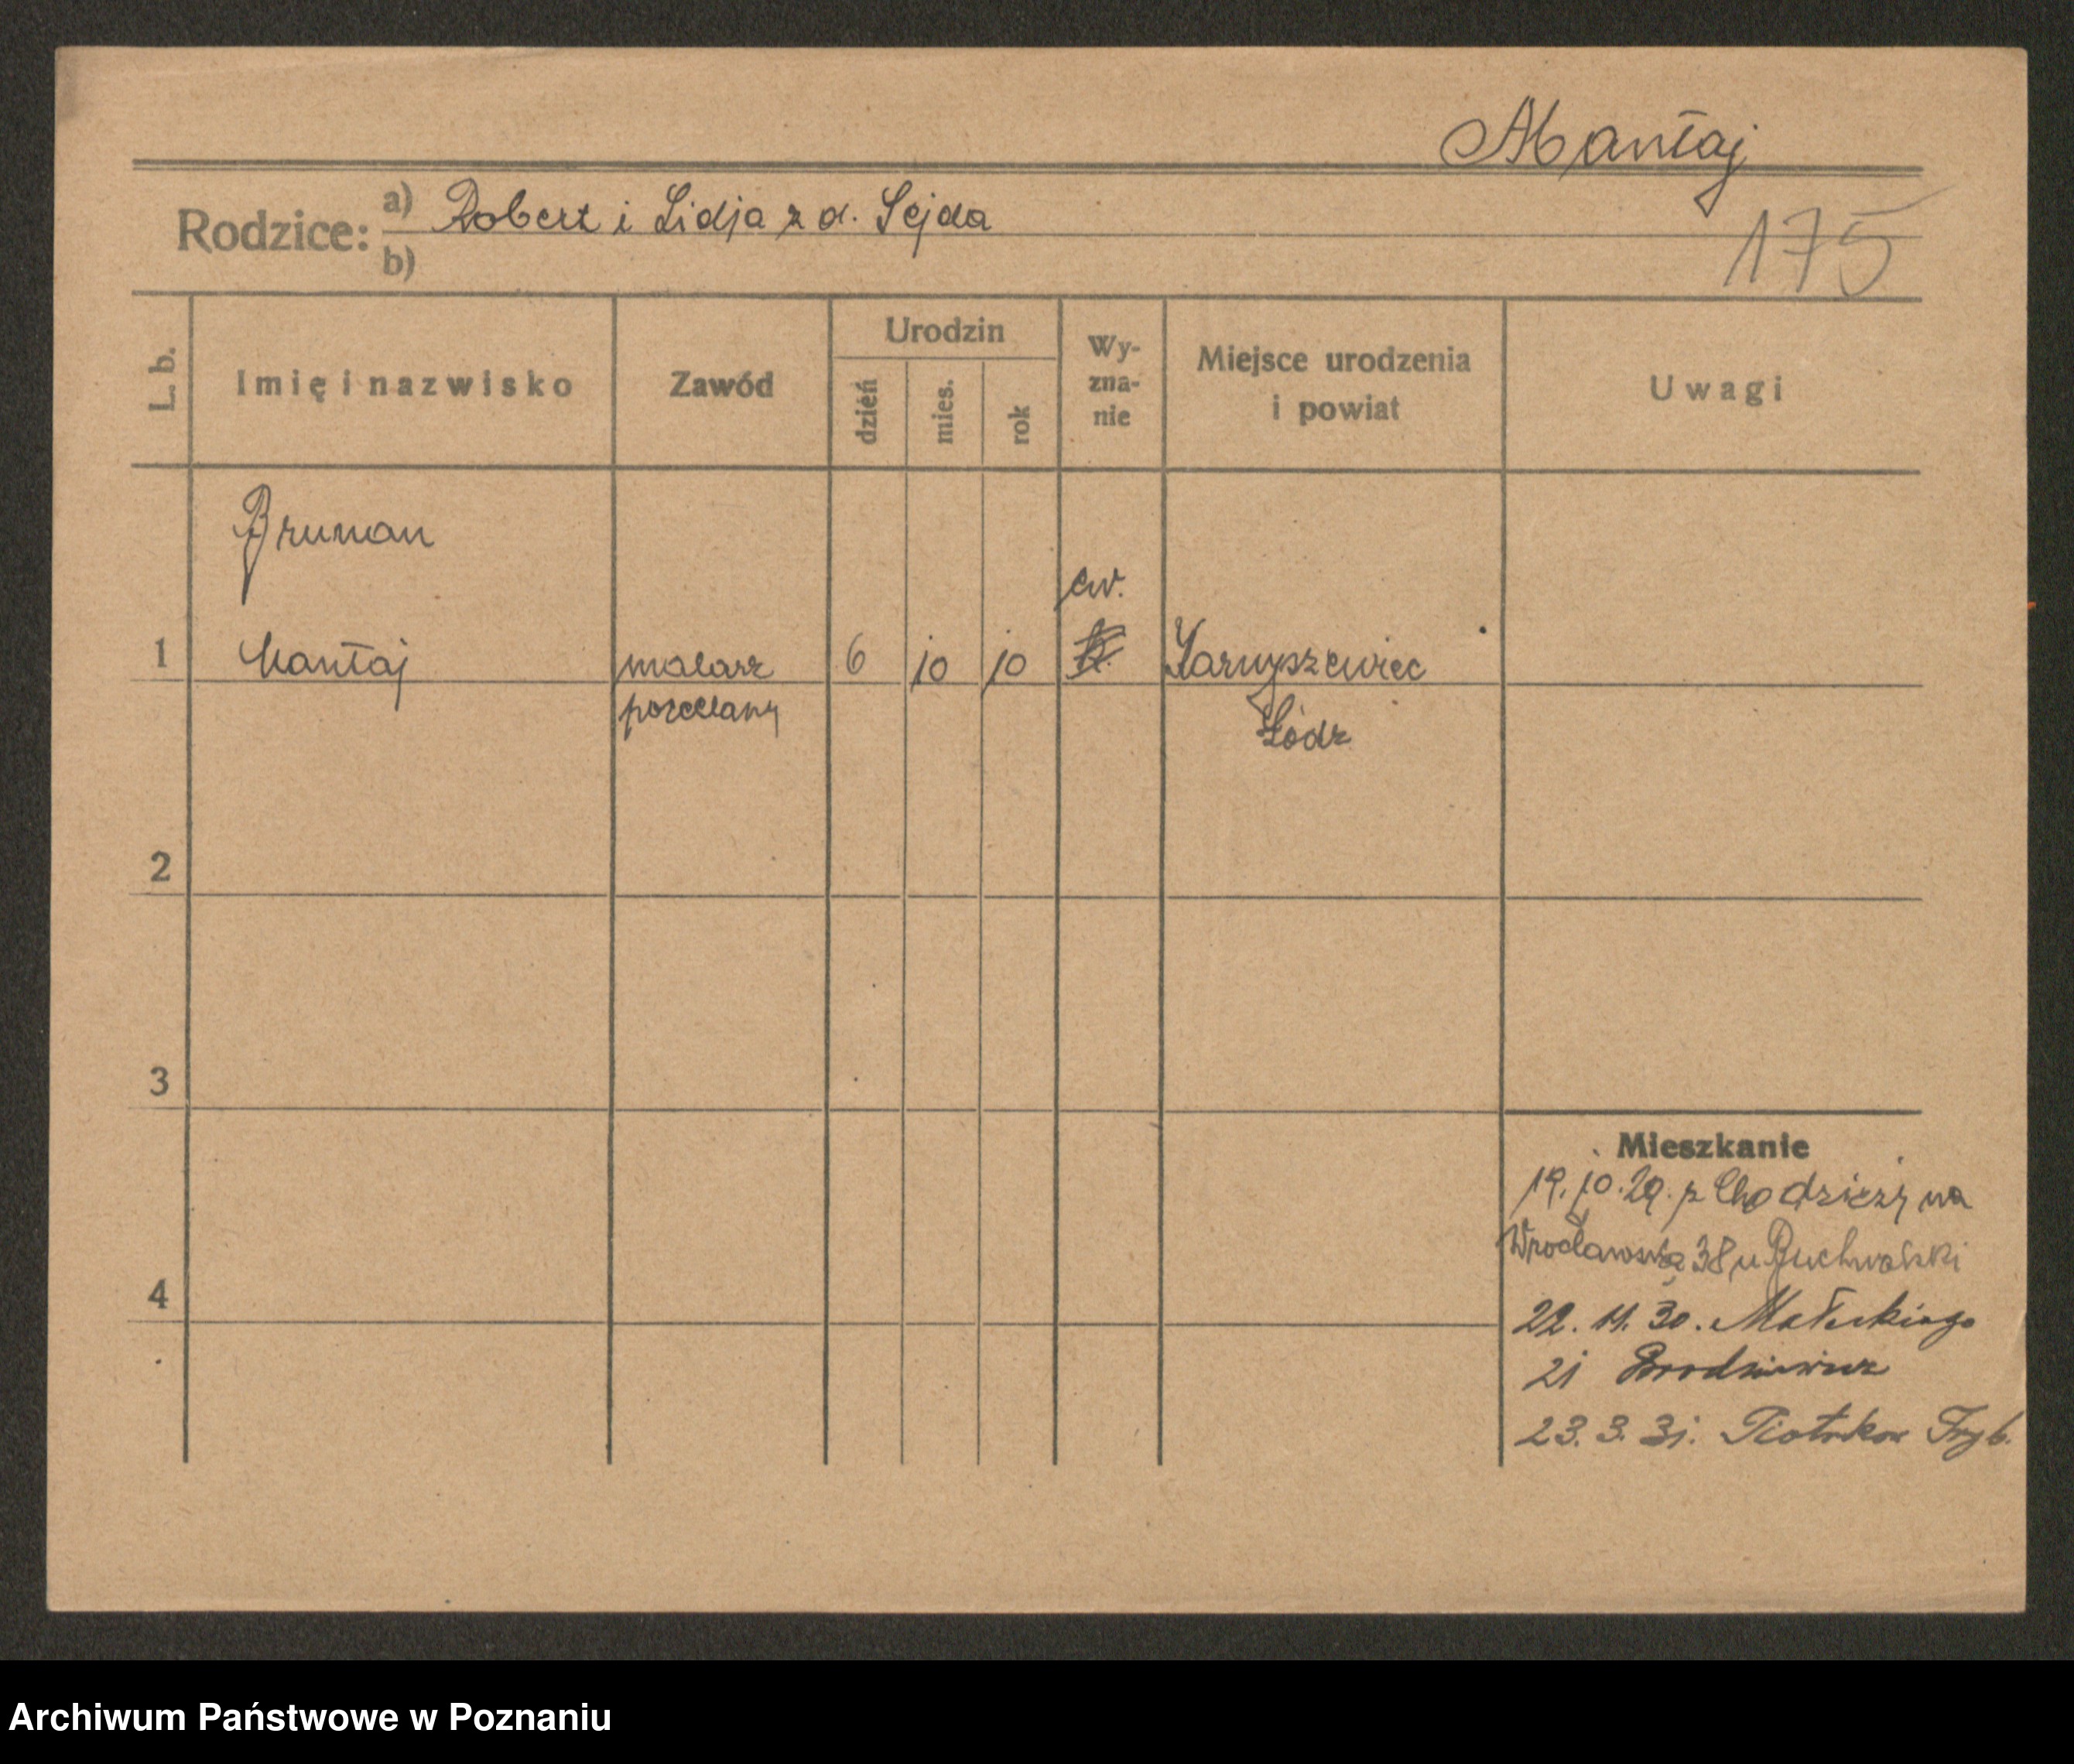 Mantaj
175
Rodzice: a) Robert i Lidja z d. Sejda
b)
L. b.
Imię i nazwisko
Zawód
Urodzin
dzień
mies.
rok
Wy-
zna-
nie
Miejsce urodzenia
i powiat
Uwagi
Bruman
ew.
1 Mantaj malarz 6 10 10
porcelany Łódz
2
3
4
Mieszkanie
19.10.29. z Chodzieży na
Wrocławską 38 u
22.11.30. Małeckiego
21
23.3.31. Piotrkow Tryb.
Archiwum Państwowe w Poznaniu